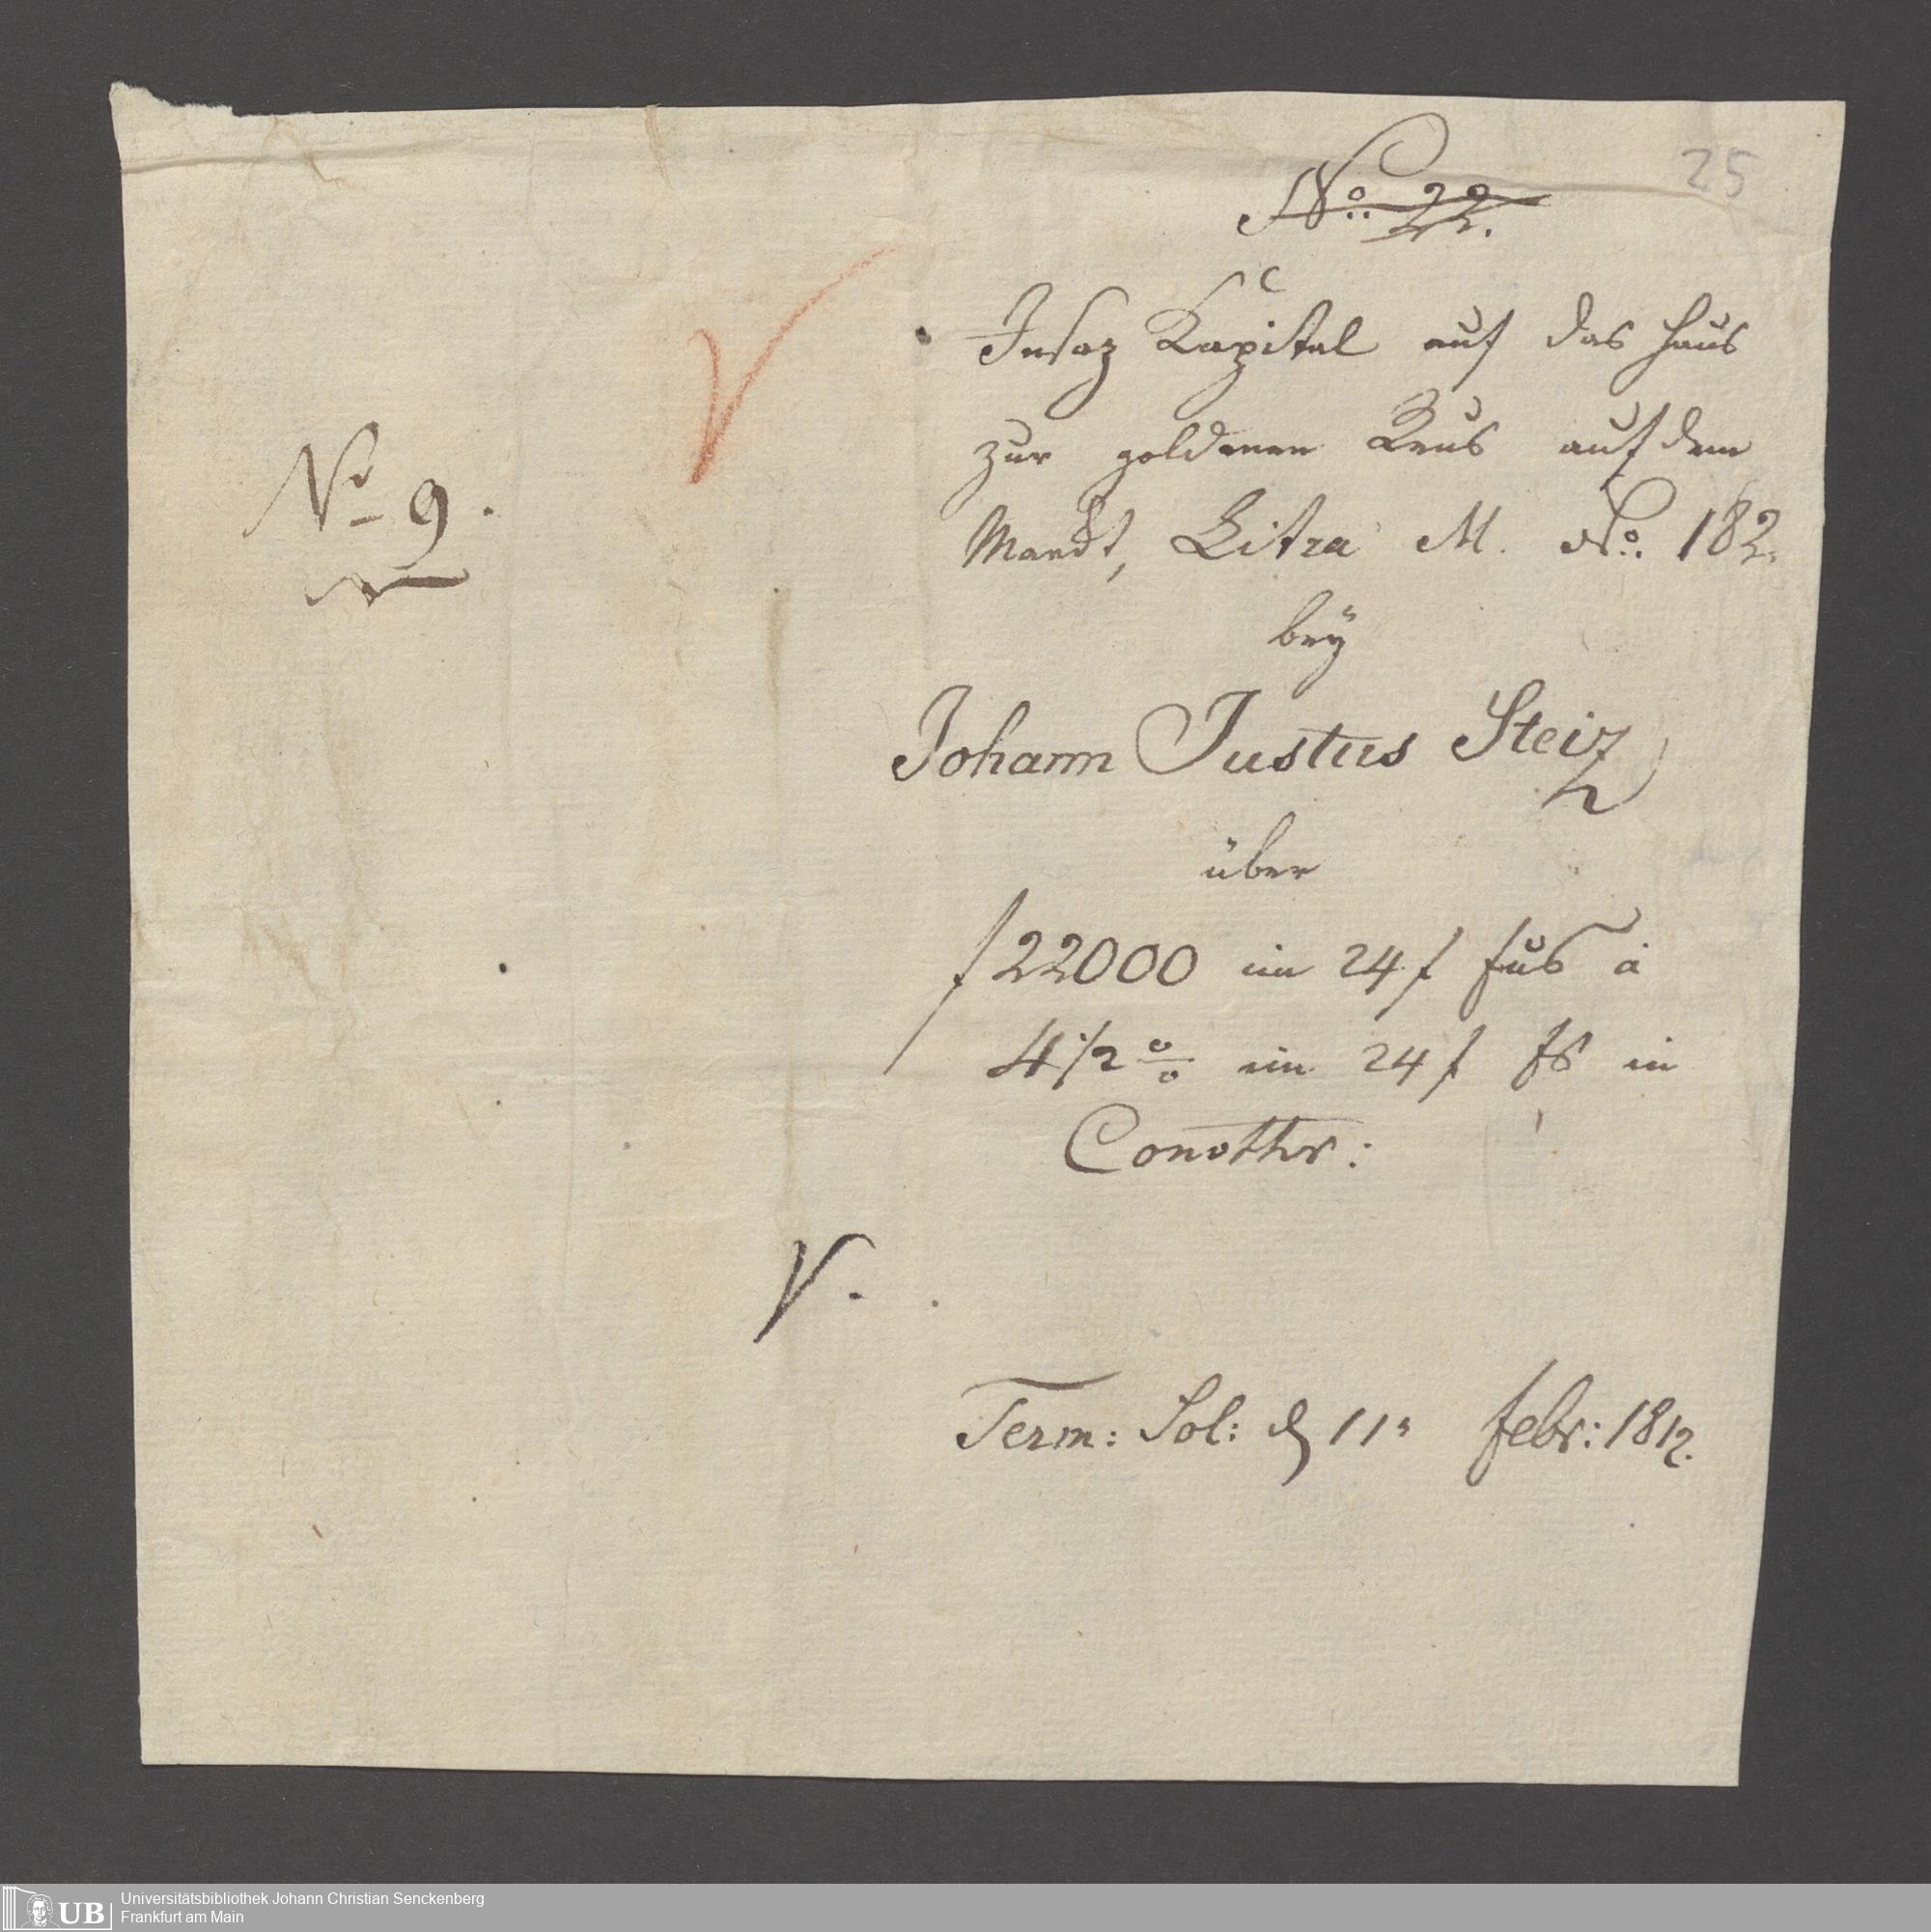 25
No. 22.
Insaz Kapital auf das Haus
zur goldenen Reus auf dem
No 9.
Markt, Litra M. No. 182.
bey
Johann Justus Steiz
über
f 22000 im 24 f Fus à
4 1/2 % im 24 f Fs in
V.
Term: Sol: d 11n Febr: 1812.
Universitätsbibliothek Johann Christian Senckenberg
Frankfurt am Main
UB